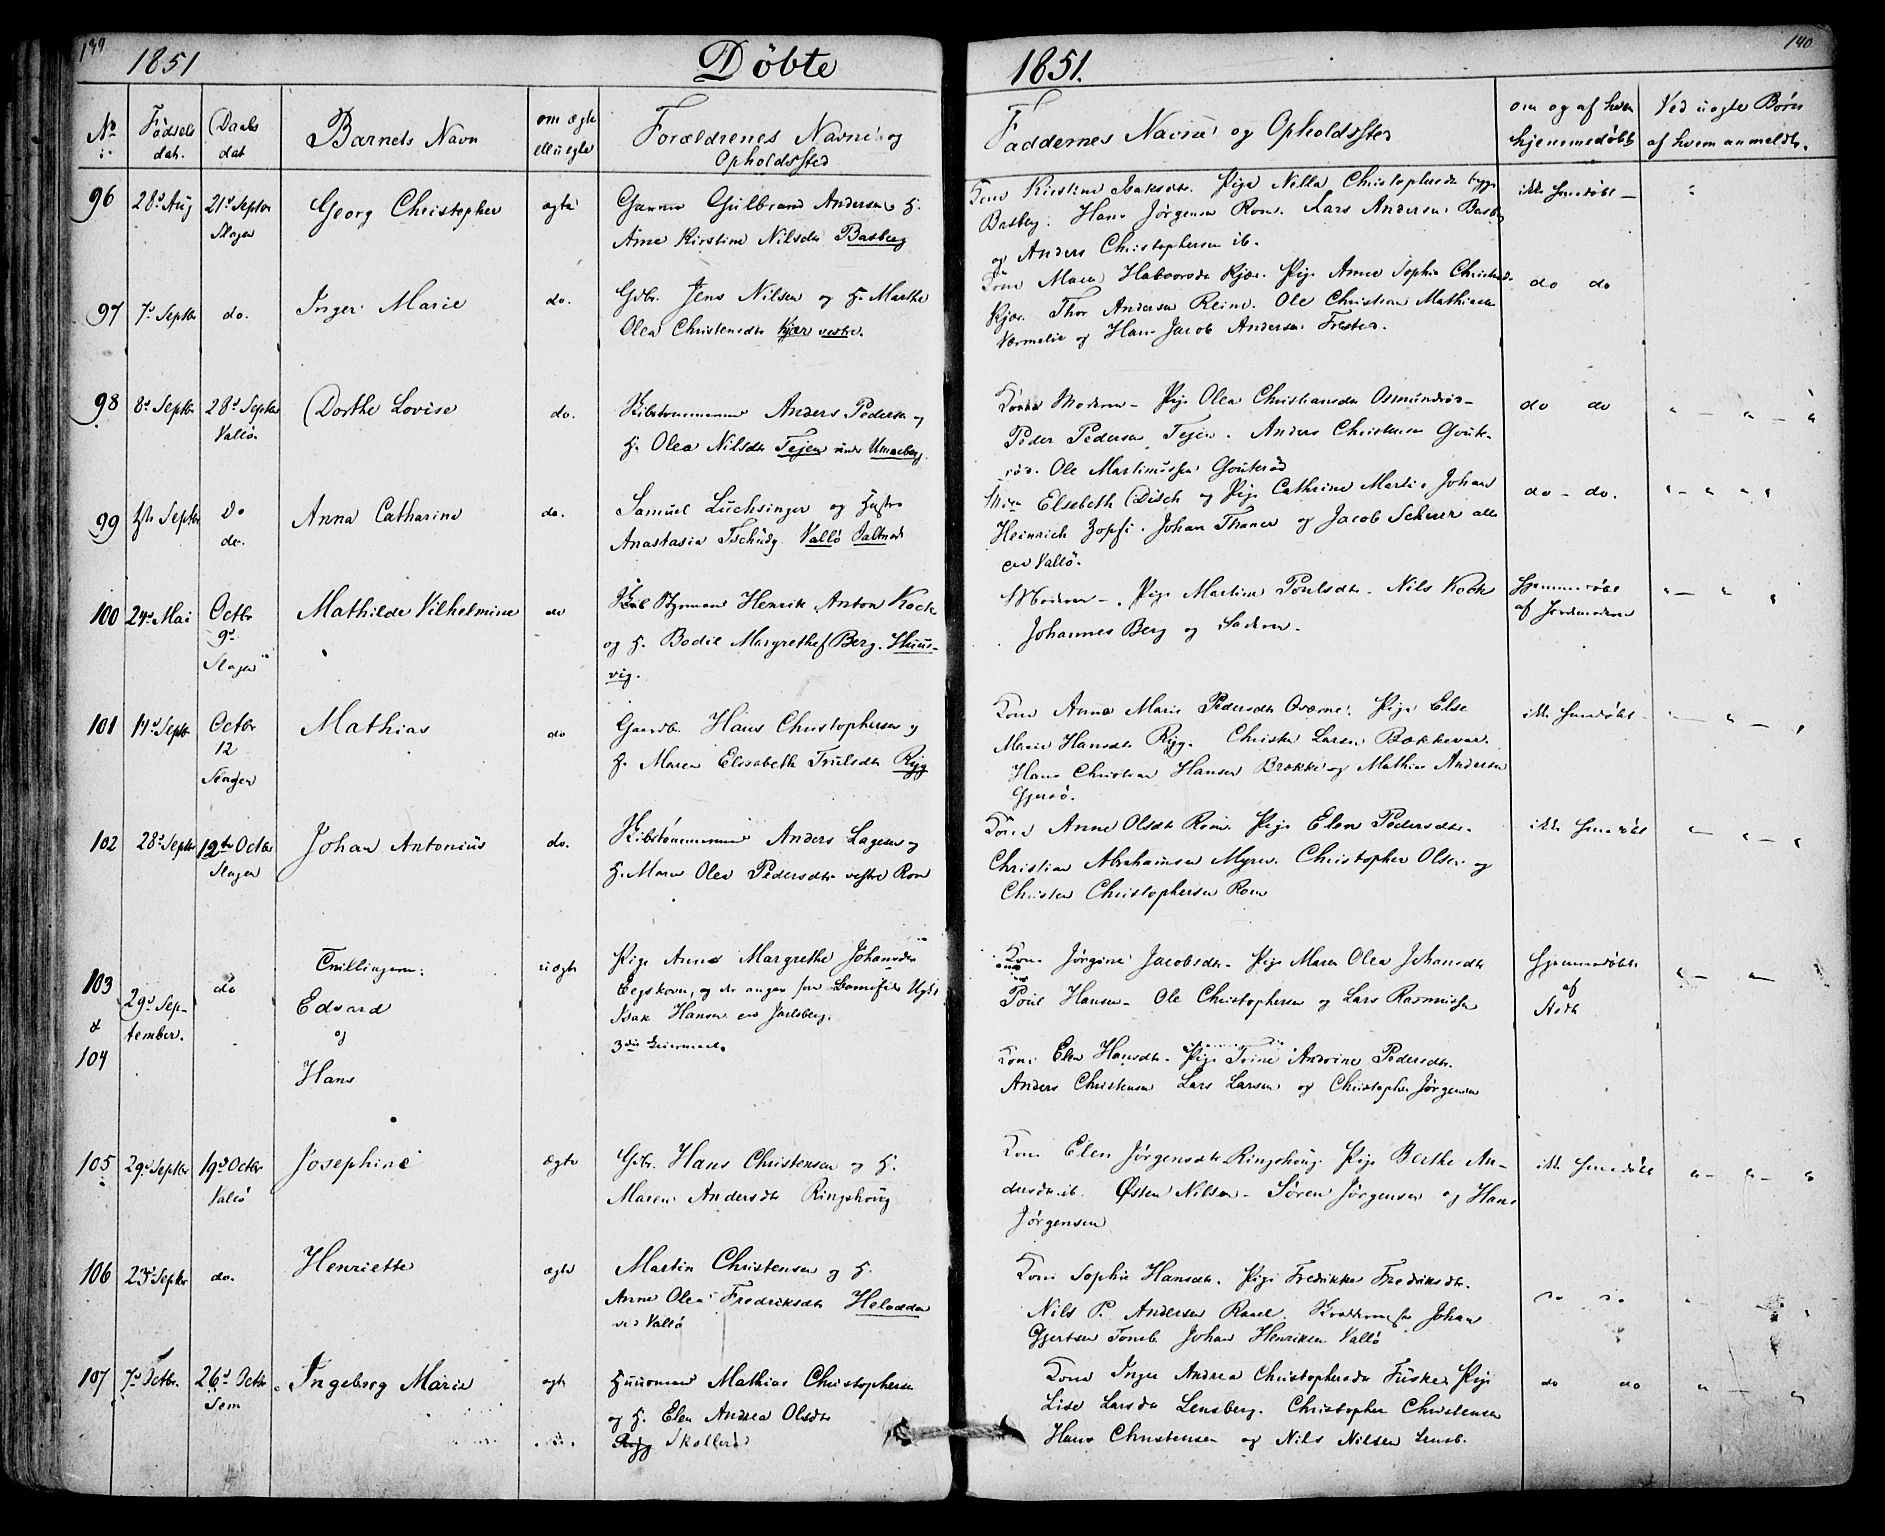 139
1851
Døbte
1851.
140
No
Fødsels dat.
Daabs dat
Barnets Navn
om ægte ell uægte
Forældrenes Navne og Opholdssted
Faddernes Navne og Opholdssted
om og af hvem hjemmedøbt
Ved uægte Børn af hvem anmeldt.
96
28d Aug
21d Septbr
Slagen
Georg Christopher
ægte
Gulbrand Andersen og H.
Ane Kirstine Nilsdtr Basberg
Kone Kirstine Isaksdtr. Pige Nilla Christophersdtr
Basberg. Hans Jørgensen Rom. Lars Andersen Basberg
og Anders Christophersen ib.
ikke hmedøbt —
97
7d Septbr
do.
Inger Marie
do.
Gdbr. Jens Nilsen og H. Marthe
Olea Christensdtr Kjær vestre.
Kone Maren Halvorsdtr Kjær. Pige Anne Sophie
Kjær. Thor Andersen Reine. Ole Christian Mathiasen
og Hans Jacob Andersen
do do
98
8d Septbr
28d Septbr
Vallø.
Dorthe Lovise
do.
Anders Pedersen og
H. Olea Nilsdtr Tejen under Unneberg.
Moderen — Pige Olea Christiansdtr Osmundrød —
Peder Pedersen Tejen. Anders Christensen Goute-
rød. Ole Martinussen Gouterød
do do
99
Septbr
do
do.
Anna Catharina
do.
Samuel Luchsinger og Hustru
Anastasia Tschudy Vallø Saltværk
Elsbeth Disch og Pige Cathrine Marti. Johan
Heinrich Zopfi. Johan Thaner og Jacob Scherer alle
Vallø.
do — do.
100
24d Mai
Octbr
9d
Slagen
Mathilde Vilhelmine
do
Styrmand Henrik Anton Kock
og H. Bodil Margrethe Berg. Huus-
vig.
Moderen —. Pige Martine Poulsdtr. Nils Kock
Johannes Berg og Faderen.
Hjemmedøbt
af Jordmoderen
101
14d Septbr
Octbr
12
Slagen
Mathias
do
Gaardbr. Hans Christophersen og
H. Maren Elisabeth Trulsdtr Ryg
Kone Anne Marie Pedersdtr. Pige Else
Marie Hansdtr Ryg. Christen Larsen Bækkevar.
Hans Christian Hansen Brække og Mathias Andersen
Gjersø.
ikke hmedøbt —
102
28d Septbr
12te Octbr
Slagen
Johan Antonius
do.
Anders Lagesen og
H. Maren Olea Pedersdtr vestre Rom
Kone Anne Olsdtr Rom. Pige Elen Pedersdtr.
Christian Abrahamsen Myren. Christopher Olsen og
Christen Christophersen Rom
ikke hmedøbt
103
&
104
29d Sep-
tember.
do
Tvillingerne:
Edvard
og
Hans
uægte
Pige Anne Margrethe Johansdtr
og de angav som Barnefader
Isak Hansen Jarlsberg.
3die Leiermaal.
Kone Jørgine Jacobsdtr. Pige Maren Olea Johansdtr
Poul Hansen — Ole Christophersen og Lars Rasmussen
Kone Elen Hansdtr. Pige Trine Andrine Pedersdtr.
Anders Christensen Lars Larsen og Christopher Jørgensen
Hjemmedøbte
af
105
29d Septbr
19d Octbr
Vallø
Josephine
ægte
Gdbr. Hans Christensen og H.
Maren Andersdtr Ringshoug
Kone Elen Jørgensdtr Ringshoug. Pige Berthe An-
dersdtr ib. Østen Nilsen — Søren Jørgensen og Hans
Jørgensen
ikke hmedøbt
106
23d Septbr
do.
Henriette
ægte
Martin Christensen og H.
Anne Olea Fredriksdtr Helodden
ved Vallø
Kone Sophie Hansdtr. Pige Fredrikke Fredriksdtr.
Nils P. Andersen Ravel. Johan
Gjertsen Tomb. Johan Henriksen Vallø
do do
107
7d Octbr.
26d Octbr
Sem
Ingeborg Marie
ægte
Huusmand Mathias Christophersen
og H. Elen Andrea Olsdtr
Skollerød
Kone Inger Andrea Christophersdtr Pige
Lise Larsdtr Lensberg. Christopher Christensen
Hans Christensen og Nils Nilsen Lensb.
do do